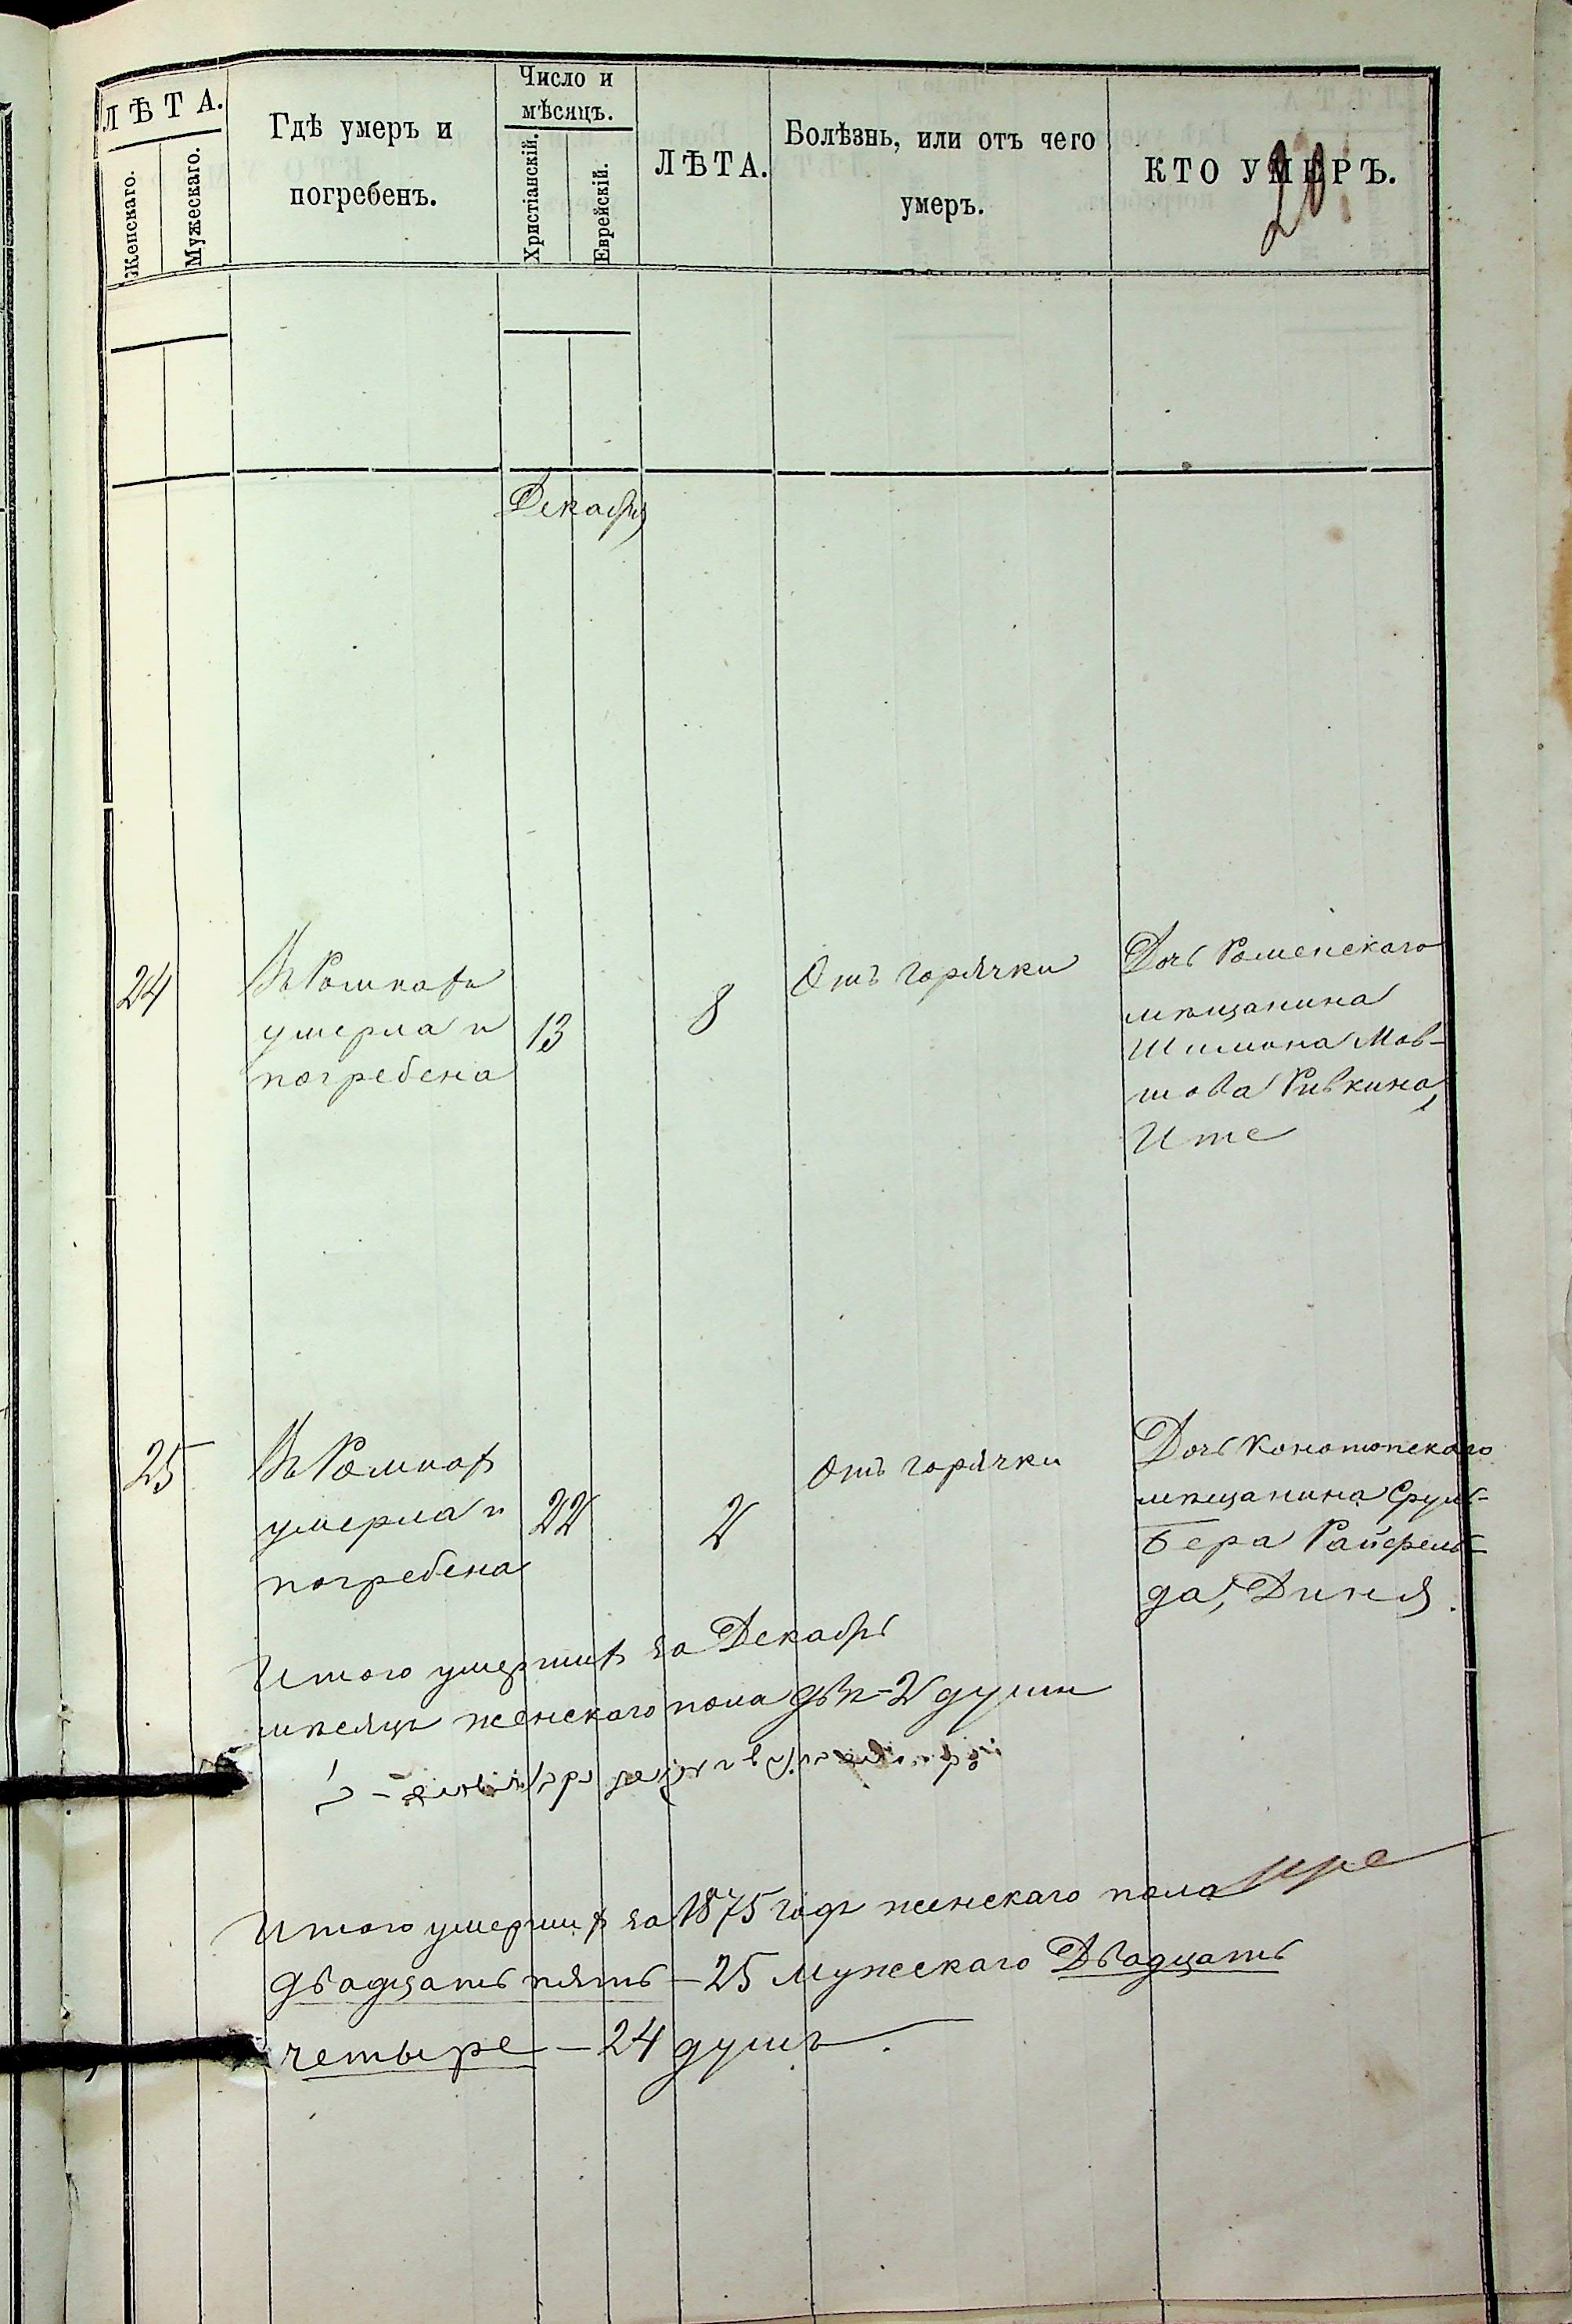 ЛѢТА.
Женскаго.
Мужескаго.
Гдѣ умеръ и
погребенъ.
Число и
мѣсяцъ.
Христіанскій.
Еврейскій.
ЛѢТА.
Болѣзнь, или отъ чего
умеръ.
КТО УМЕРЪ.
20
Декабря
24
Въ Ромнахъ
умерла и
погребена
13
8
Отъ горячки
Дочь Роменскаго
мѣщанина
Шимона Мов-
шова Ривкина,
Ите
25
Въ Ромнахъ
умерла и
погребена
22
2
Отъ горячки
Дочь Конотопскаго
мѣщанина Сруль-
Бера Райфель-
да, Диня.
Итого умершихъ за Декабрь
мѣсяцъ женскаго пола двѣ - 2 души
Итого умершихъ за 1875 годъ женскаго пола
двадцать пять - 25 Мужескаго Двадцать
четыре - 24 душъ.